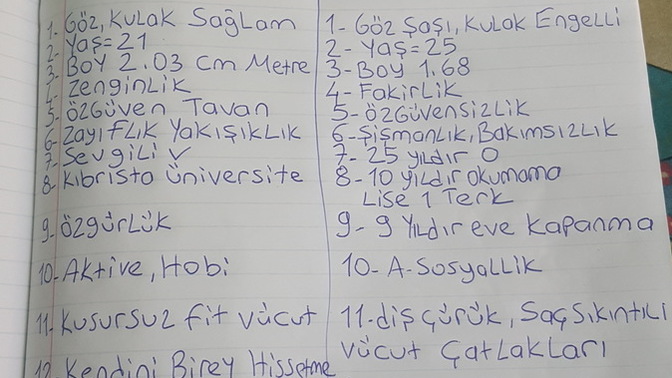 1- Göz, Kulak Sağlam
2- Yaş=21
3- Boy 2.03 cm Metre
4- Zenginlik
5- Özgüven Tavan
6- Zayıflık Yakışıklık
7- Sevgili ✓
8- Kıbrısta Üniversite
9- Özgürlük
10- Aktive, Hobi
11- Kusursuz fit vücut
12- Kendini Birey Hissetme
1- Göz Şaşı, Kulak Engelli
2- Yaş=25
3- Boy 1.68
4- Fakirlik
5- Özgüvensizlik
6- Şişmanlık, Bakımsızlık
7- 25 yıldır 0
8- 10 yıldır okumama
Lise 1 Terk
9- 9 Yıldır eve kapanma
10- A-Sosyallik
11- diş çürük, Saç Sıkıntılı
vücut Çatlakları